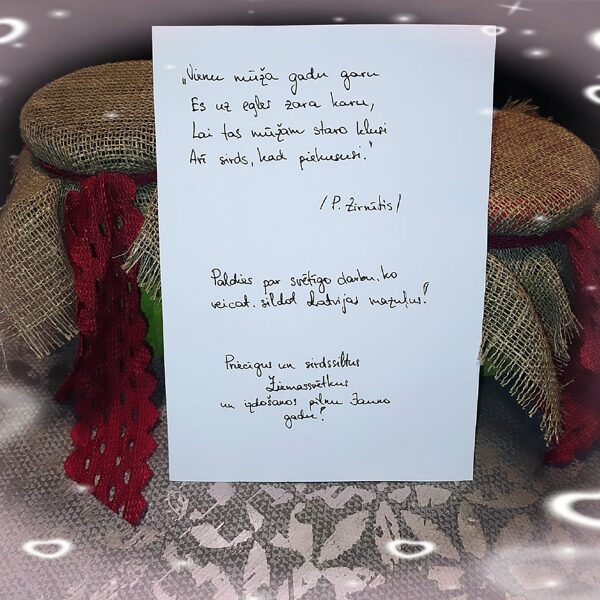 „Vienu mūža gadu garu
Es uz egles zara karu,
Lai tas mūžam staro klusi
Arī sirds, kad piekususi."
/P. Zirnītis/
Paldies par svētīgo darbu, ko
veicat, sildot Latvijas mazuļus!
Priecīgus un sirdssiltus
Ziemassvētkus
un izdošanos pilnu Jauno
gadu!